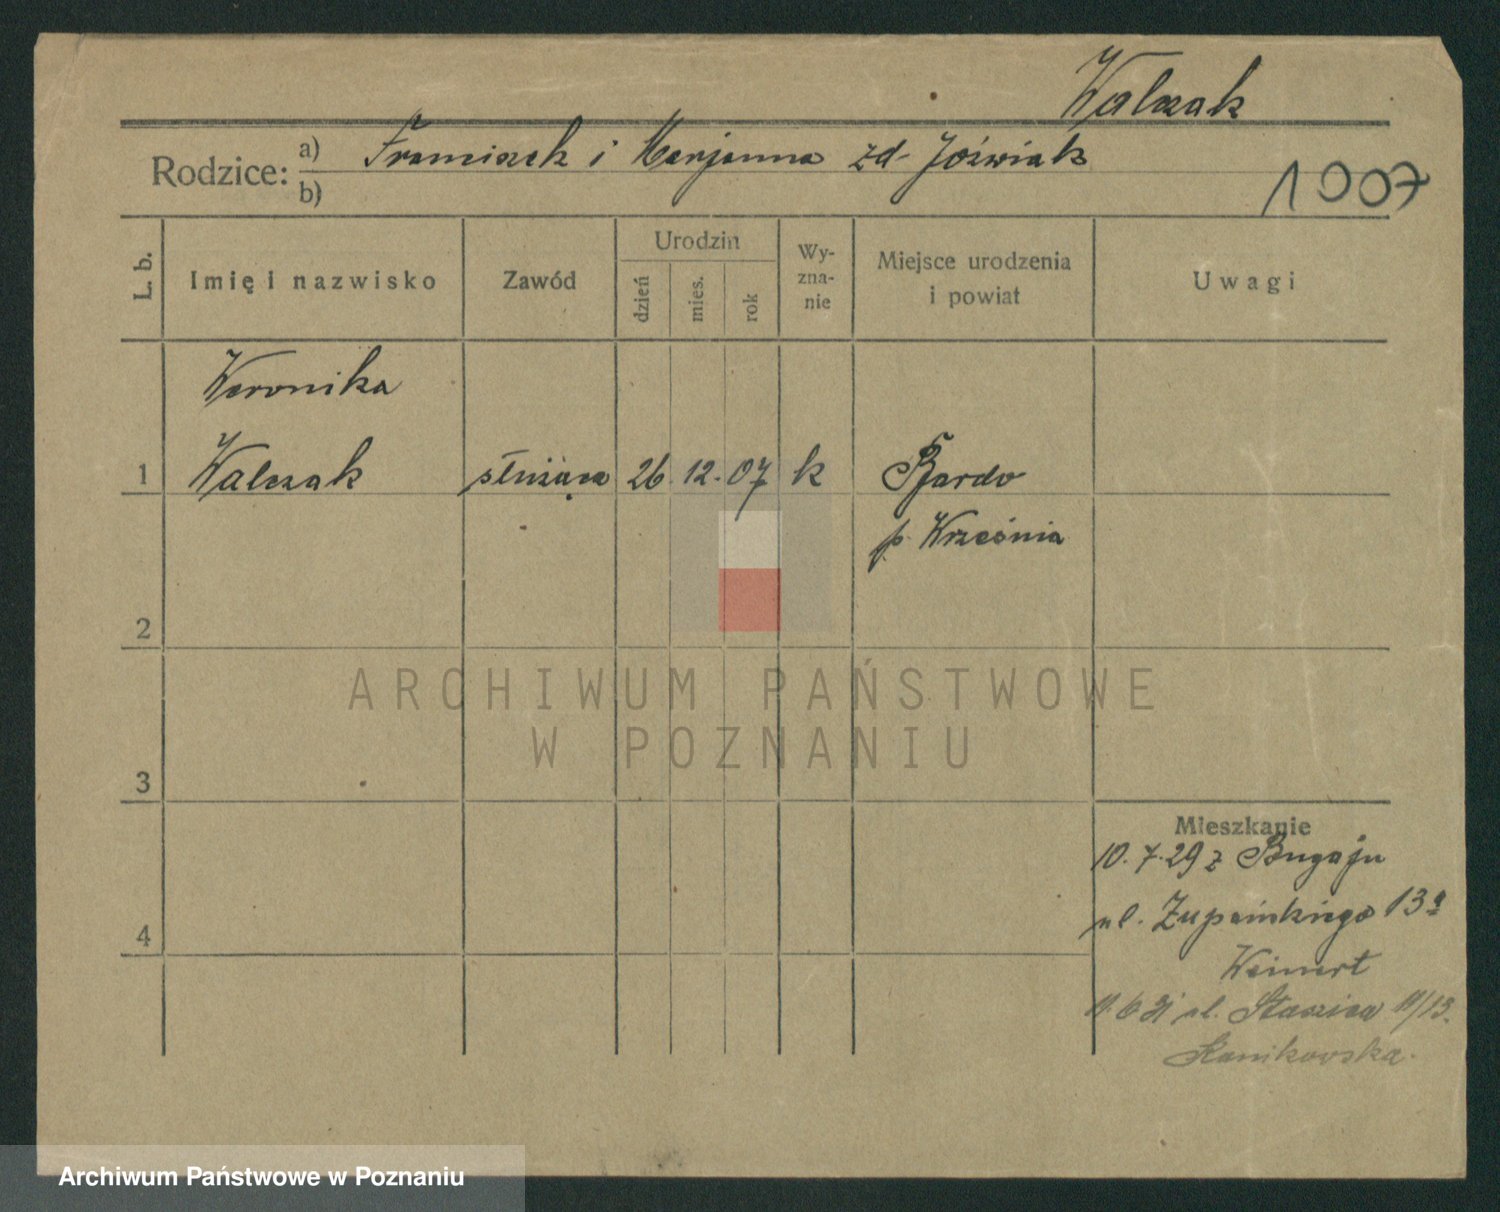 Walczak
Rodzice: a) Franciszek i Marjanna zd. Jóźwiak
b)
1907
L. b.
Imię i nazwisko
Zawód
Urodzin
dzień
mies.
rok
Wy-
zna-
nie
Miejsce urodzenia
i powiat
Uwagi
Weronika
1 Walczak służąca 26. 12. 07 k Bardo
p. Września
2
ARCHIWUM PAŃSTWOWE
W POZNANIU
3
Mieszkanie
10.7.29 z Bugaju
ul. Żupańskiego 13a
4
Weinert
11.6.31 ul. Staszica 11/13.
Archiwum Państwowe w Poznaniu